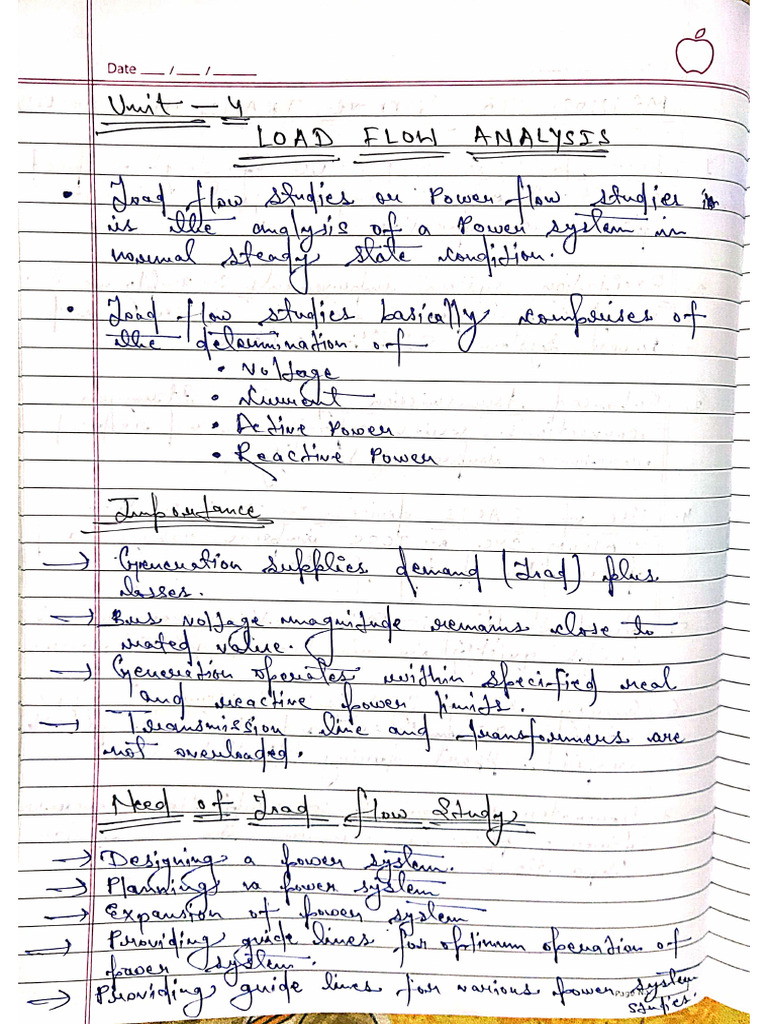 Date __ / __ / ____
Unit - 4
LOAD FLOW ANALYSIS
• Load flow studies or Power flow studies
is the analysis of a Power system in
normal steady state condition.
• Load flow studies basically comprises of
the determination of
• Voltage
• Current
• Active Power
• Reactive Power
Importance
→ Generation supplies demand (Load) plus
losses.
→ Bus voltage magnitude remains close to
rated value.
→ Generation operates within specified real
and reactive power limits.
→ Transmission line and transformers are
not overloaded.
Need of Load flow Study
→ Designing a power system.
→ Planning a power system
→ Expansion of power system
→ Providing guide lines for optimum operation of
power system.
→ Providing guide lines for various power system
studies.